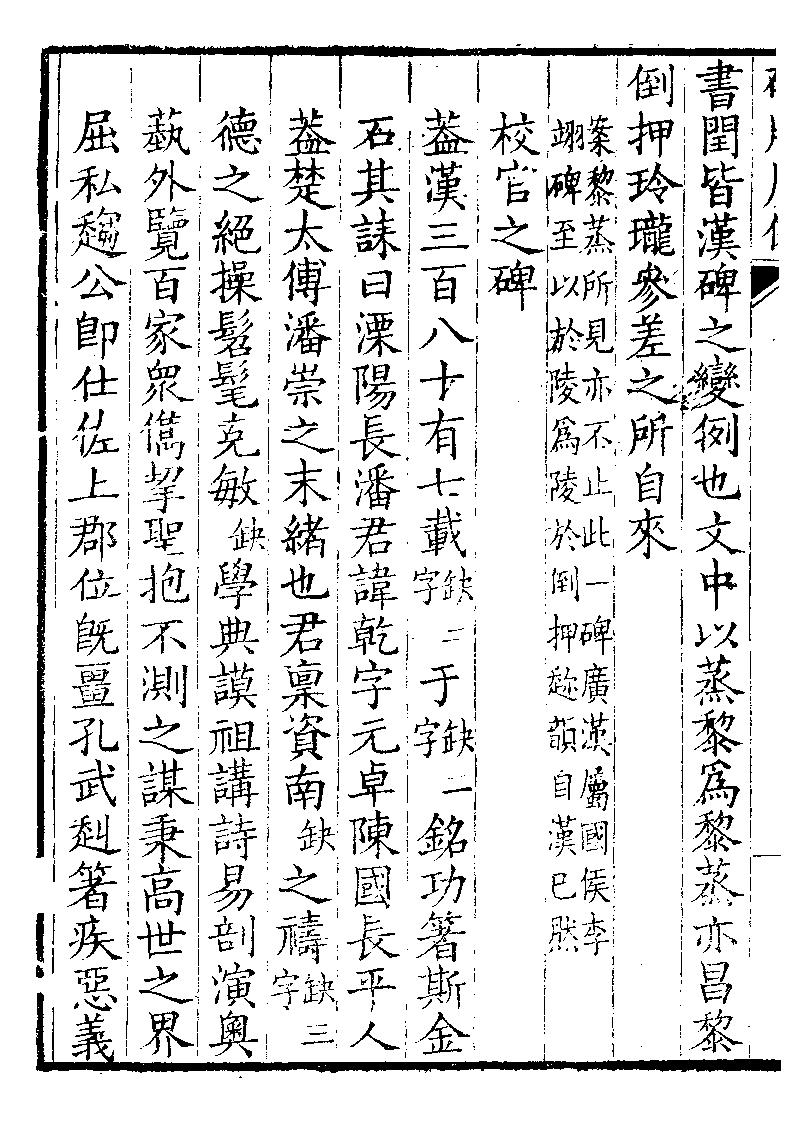 書閏皆漢碑之變例也文中以蒸黎爲黎蒸亦昌黎
倒押玲瓏參差之所自來
案黎蒸所見亦不止此一碑廣漢屬國侯李
翊碑至以於陵爲陵於倒押趂韻自漢已然
校官之碑
葢漢三百八十有七載缺二字于缺一字銘功箸斯金
石其誄曰溧陽長潘君諱乾字元卓陳國長平人
葢楚太傅潘崇之末緒也君稟資南缺之禱缺三字
德之絕操髫髦克敏缺學典謨祖講詩易剖演奧
蓺外覽百家眾儁挈聖抱不測之謀秉高世之界
屈私趨公卽仕佐上郡位旣畺孔武赳箸疾惡義